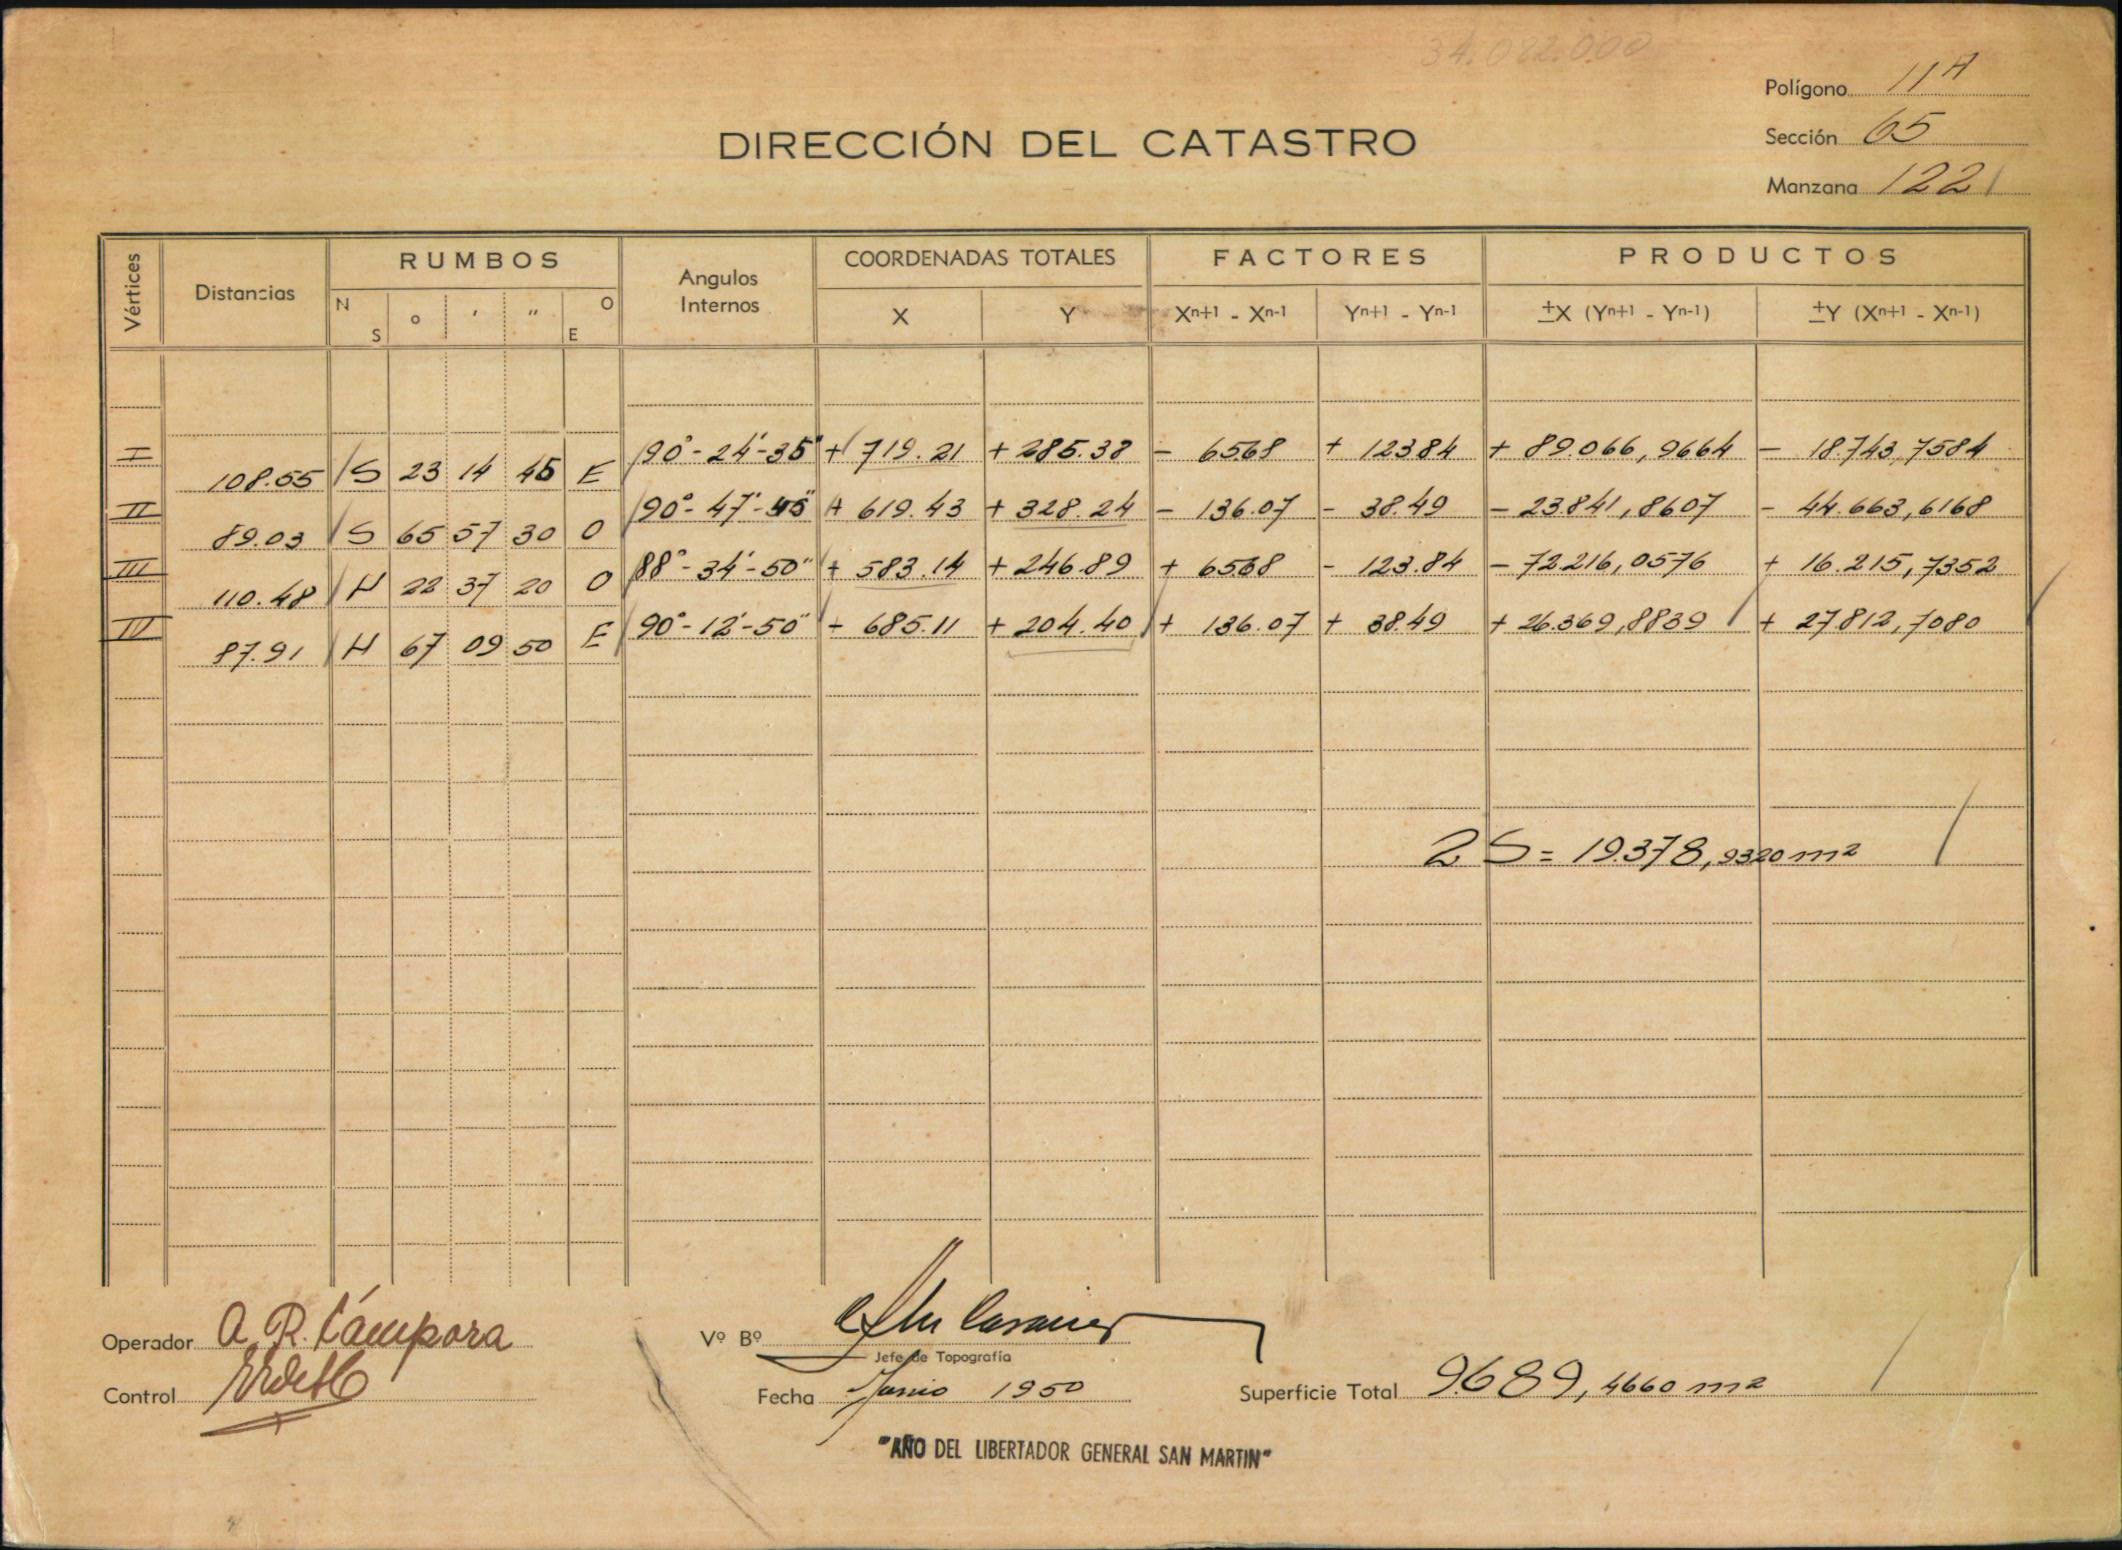 34.082.000
Polígono 11A
DIRECCIÓN DEL CATASTRO
Sección 65
Manzana 122
Vértices Distancias RUMBOS Angulos Internos COORDENADAS TOTALES FACTORES PRODUCTOS
N S o ' " O E X Y Xn+1 - Xn-1 Yn+1 - Yn-1 ±X (Yn+1 - Yn-1) ±Y (Xn+1 - Xn-1)
I 90°-24'-35" + 719.21 + 285.38 - 65.68 + 123.84 + 89.066,9664 - 18.743,7584
108.55 S 23 14 45 E
II 90°-47'-45" + 619.43 + 328.24 - 136.07 - 38.49 - 23.841,8607 - 44.663,6168
89.03 S 65 57 30 O
III 88°-34'-50" + 583.14 + 246.89 + 65.68 - 123.84 - 72.216,0576 + 16.215,7352
110.48 N 22 37 20 O
IV 90°-12'-50" + 685.11 + 204.40 + 136.07 + 38.49 + 26.369,8839 + 27.812,7080
87.91 N 67 09 50 E
2S = 19.378,9320 m2
Operador A. R. Cámpora
Vº Bº
Jefe de Topografía
Control
Fecha Junio 1950
Superficie Total 9.689,4660 m2
"AÑO DEL LIBERTADOR GENERAL SAN MARTIN"